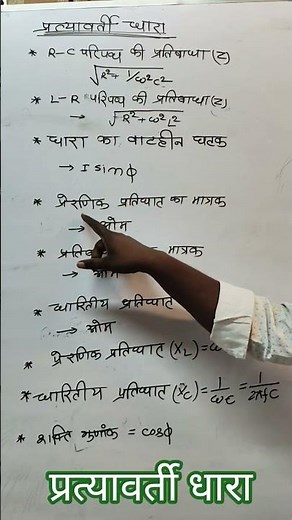 प्रत्यावर्ती धारा
* R-C परिपथ की प्रतिबाधा (Z)
√R²+ 1/ω²c²
* L-R परिपथ की प्रतिबाधा (Z)
→ √R²+ω²L²
* धारा का वाटहीन घटक
→ I sinϕ
* प्रेरणिक प्रतिघात का मात्रक
→ ओम
* मात्रक
→ ओम
* धारितीय प्रतिघात
→ ओम
* प्रेरणिक प्रतिघात (X_L) =
* धारितीय प्रतिघात (X_C) = 1/ωc = 1/2πfc
* शक्ति गुणांक = cosϕ
प्रत्यावर्ती धारा